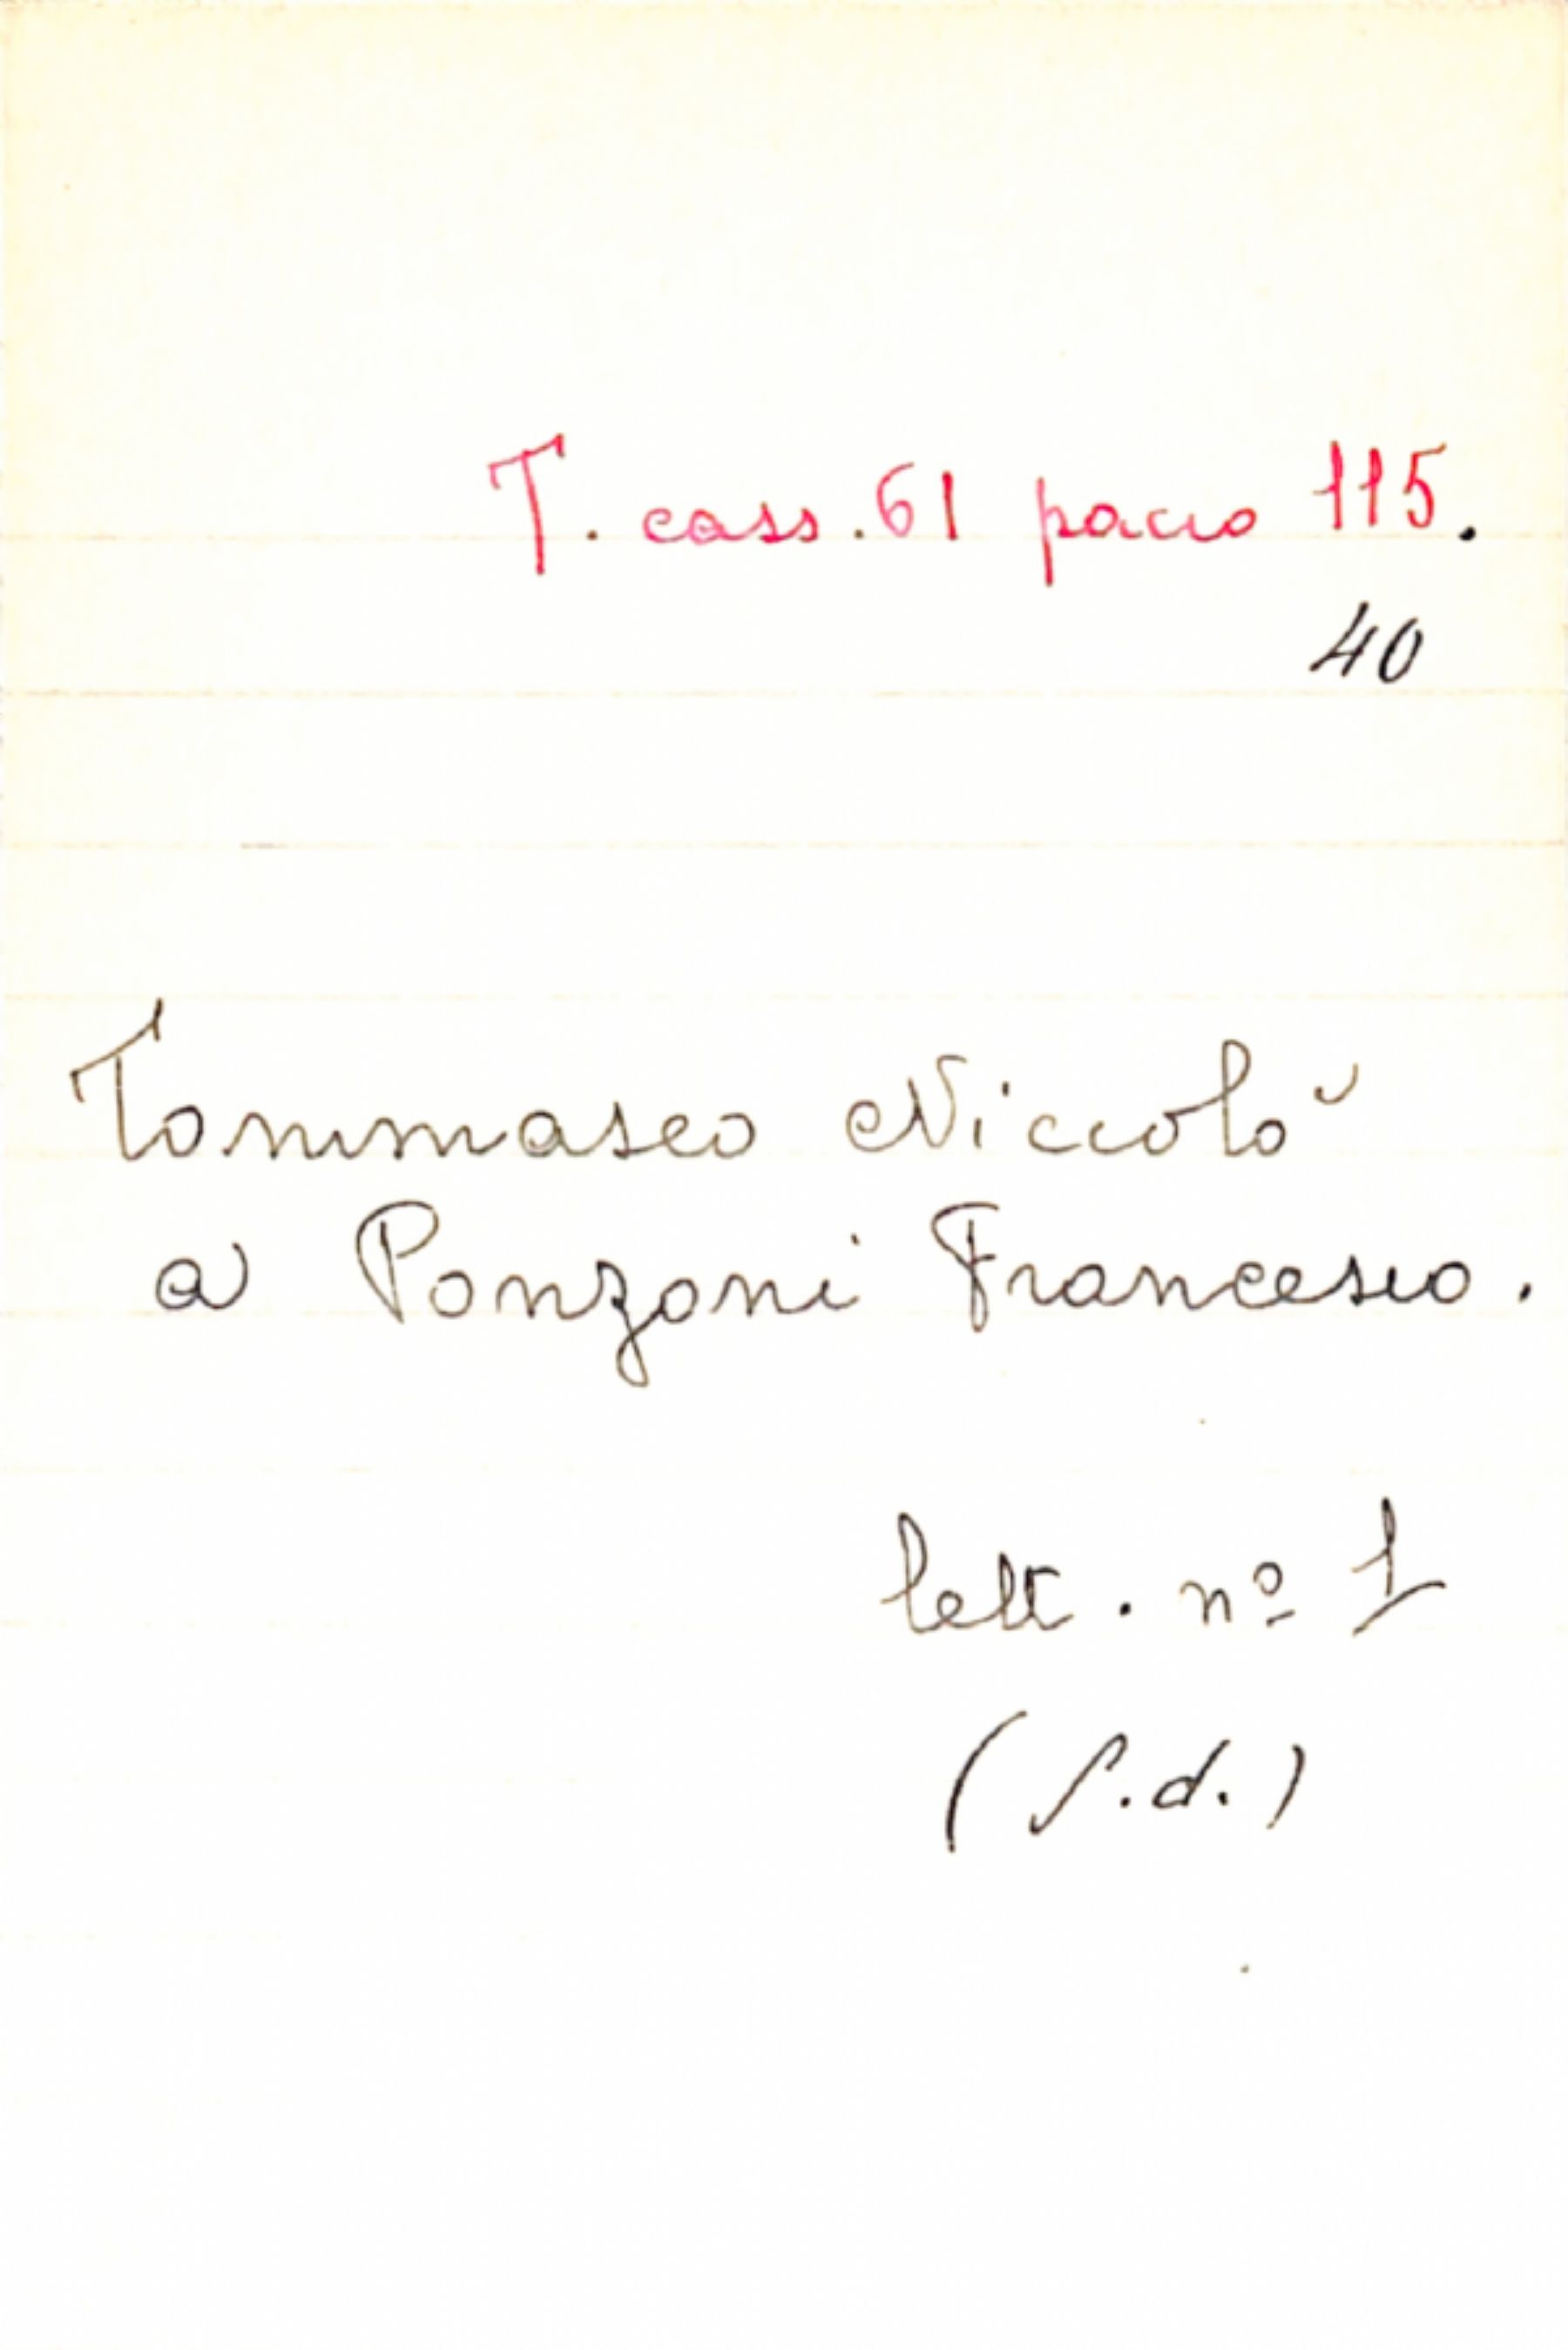 T. cass. 61 pacco 115.
40
Tommaseo Niccolò
a Ponzoni Francesco.
lett. nº 1
(s.d.)